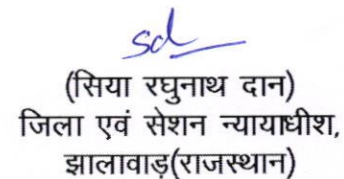 sd
(सिया रघुनाथ दान)
जिला एवं सेशन न्यायाधीश,
झालावाड़(राजस्थान)